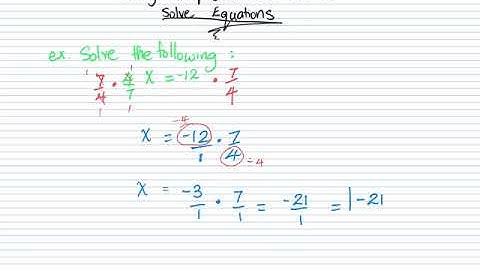 Solve Equations
ex. Solve the following :
7/4 · 4/7 x = -12 · 7/4
x = -12/1 · 7/4 ÷4
x = -3/1 · 7/1 = -21/1 = -21